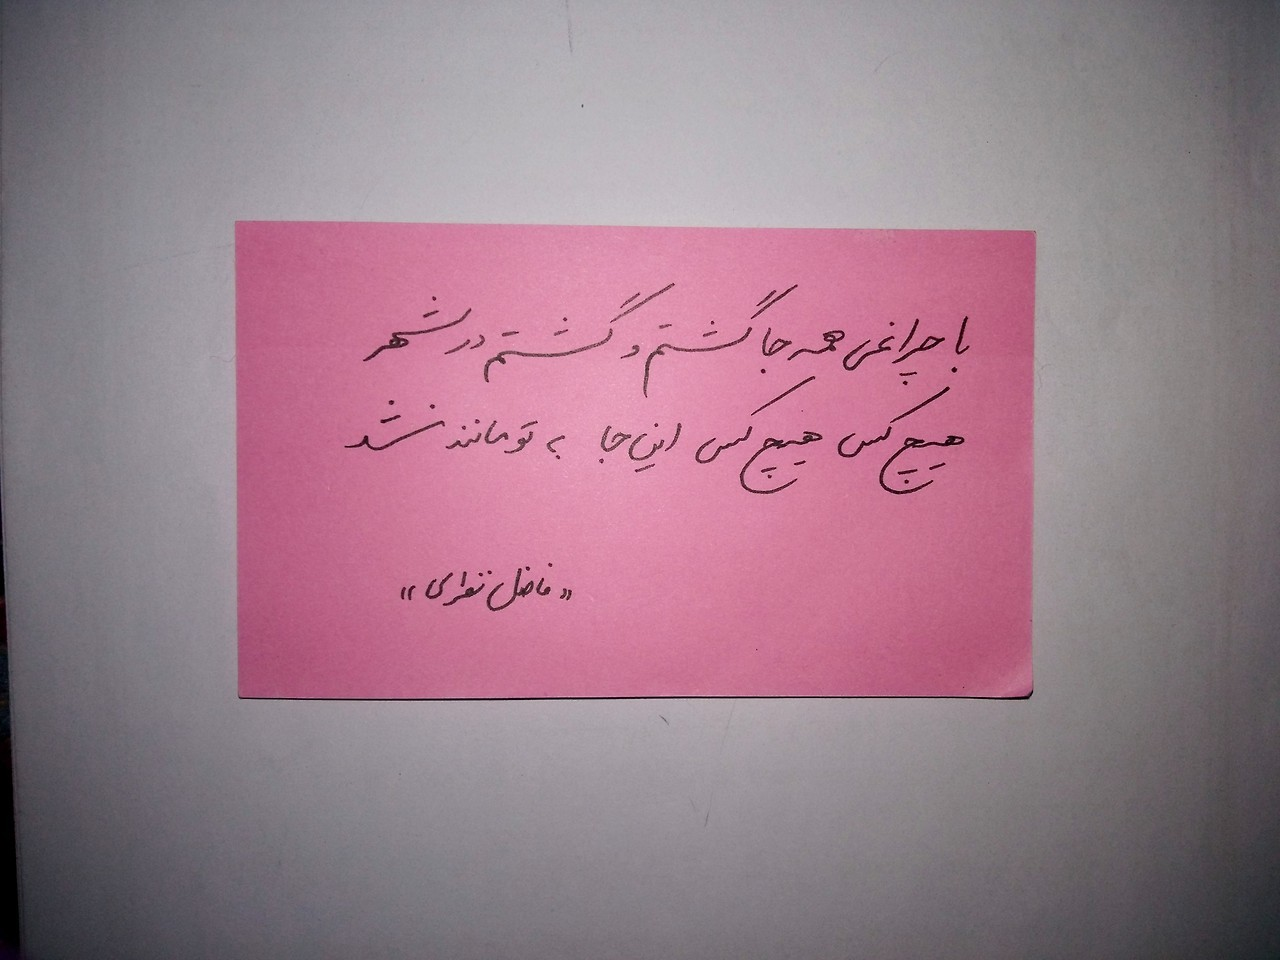 با چراغی همه جا گشتم و گشتم در شهر
هیچ کس هیچ کس این جا به تو مانند نشد
«فاضل نظری»